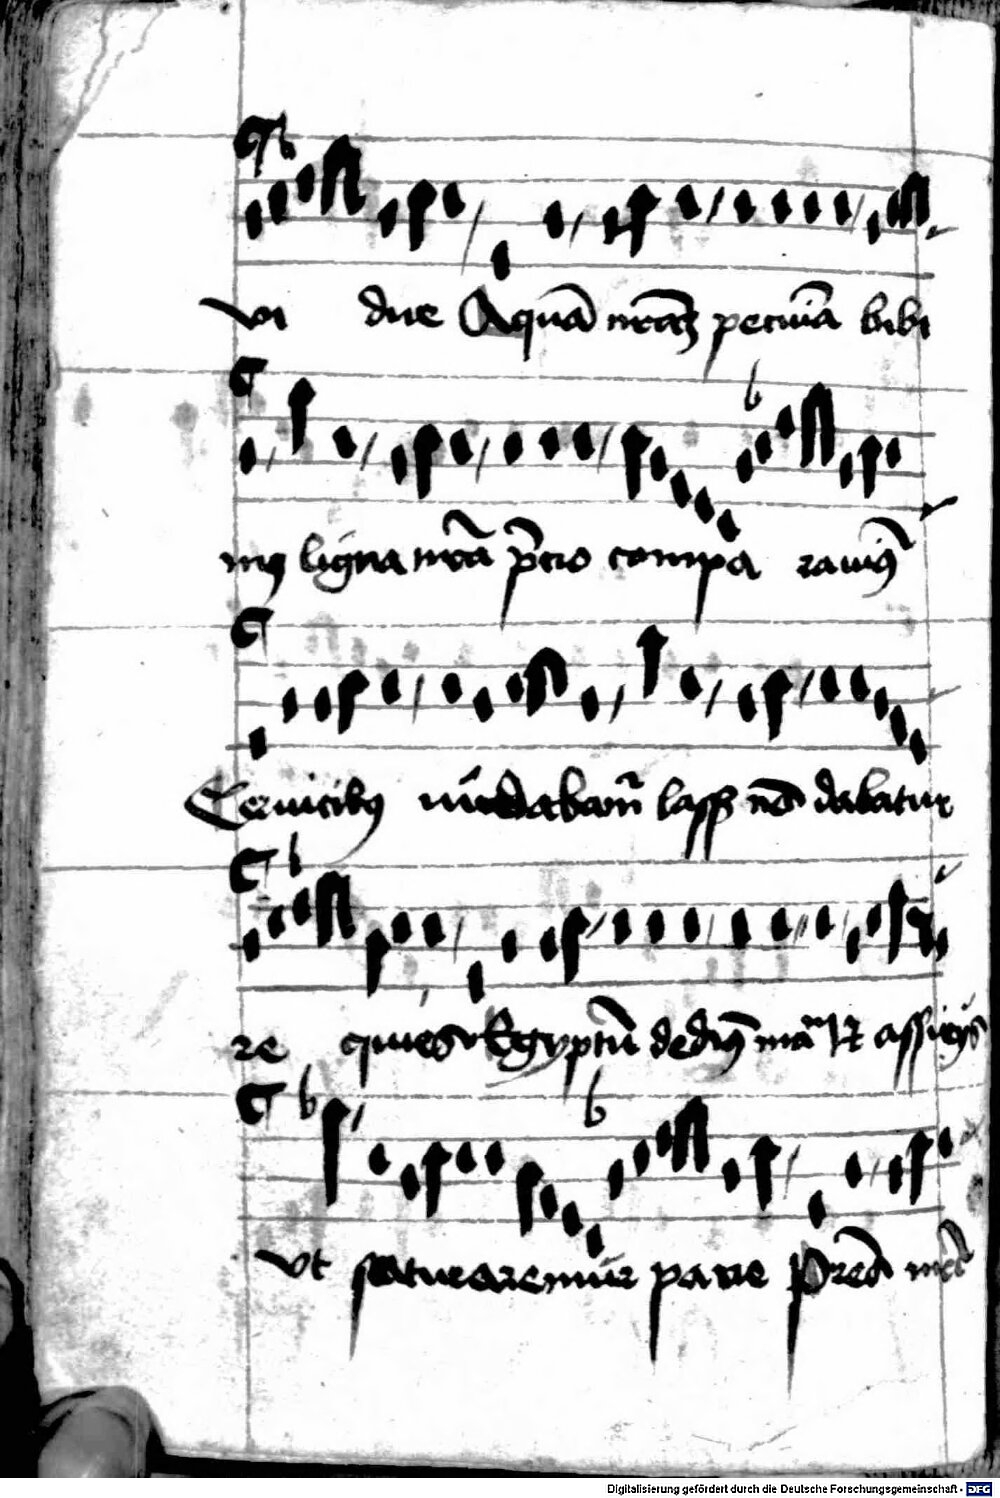 vi due Aquã nr̃aʒ pecuniã bibi
mꝯ ligna nr̃a p̃cio compa rauimꝯ
Ceruicibꝯ mĩabamr̃ lassis nõ dabatur
re quies Egyptũ dedimꝯ manũ et assirijs
vt saturaremur pane Pr̃es
Digitalisierung gefördert durch die Deutsche Forschungsgemeinschaft - DFG